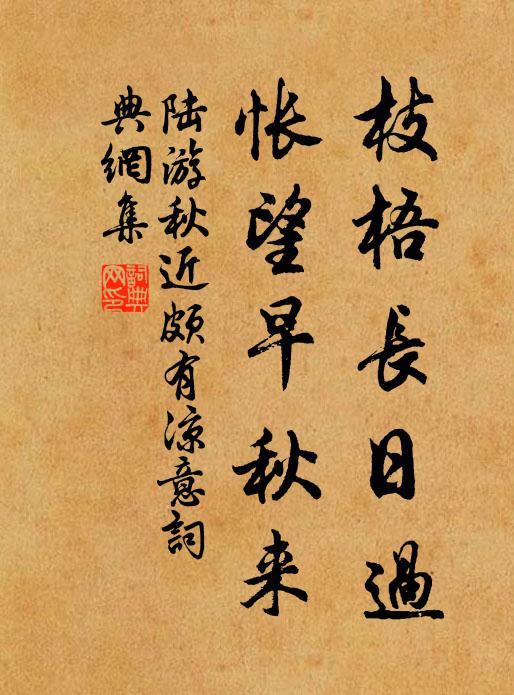 枝梧長日過
悵望早秋来
陆游秋近頗有凉意詞
典網集
詞典網印